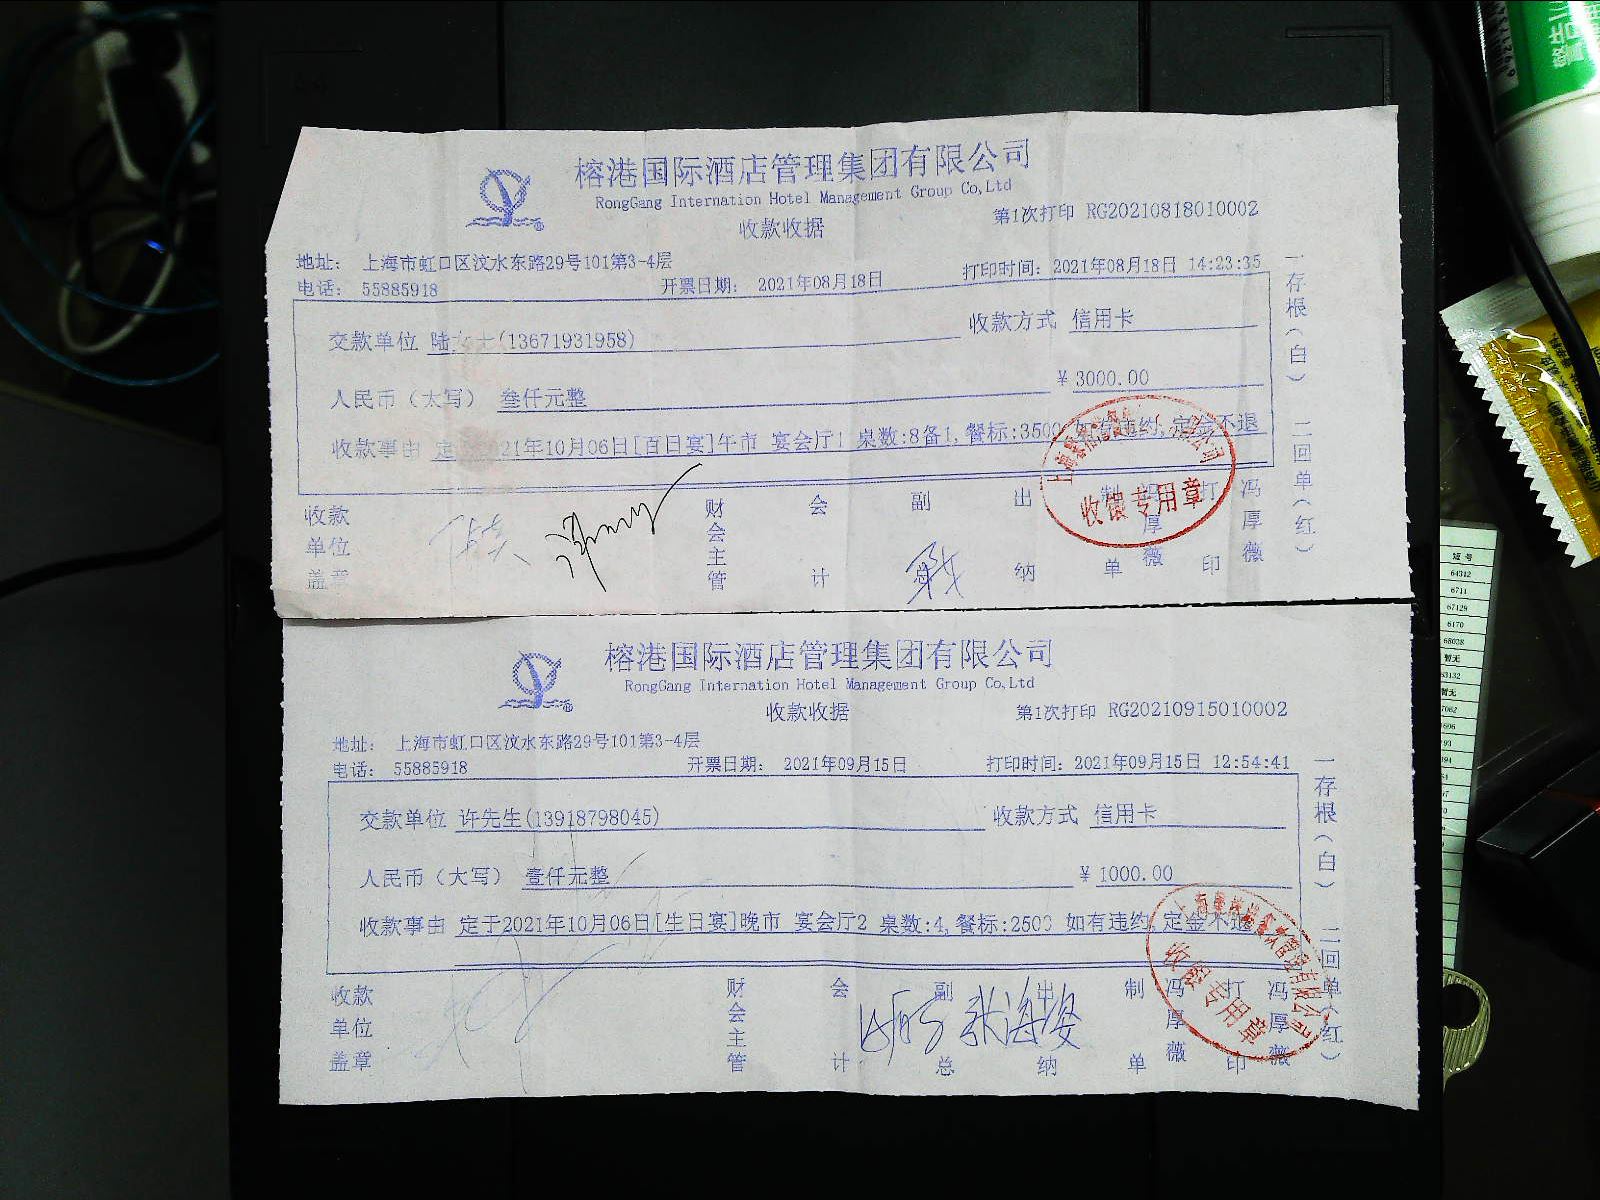 榕港国际酒店管理集团有限公司
RongGang Internation Hotel Management Group Co,Ltd
收款收据
第1次打印 RG20210818010002
地址： 上海市虹口区汶水东路29号101第3-4层
电话： 55885918
开票日期： 2021年08月18日
打印时间：2021年08月18日 14:23:35
交款单位 陆女士(13671931958)
收款方式 信用卡
人民币（大写） 叁仟元整
￥3000.00
收款事由 定 021年10月06日[百日宴]午市 宴会厅1 桌数:8备1,餐标:3500 如有违约,定金不退
收款单位盖章
财会主管
会计
副总
出纳
制单
冯厚薇
打印
冯厚薇
收银专用章
一存根（白） 二回单（红）
榕港国际酒店管理集团有限公司
RongGang Internation Hotel Management Group Co,Ltd
收款收据
第1次打印 RG20210915010002
地址： 上海市虹口区汶水东路29号101第3-4层
电话： 55885918
开票日期： 2021年09月15日
打印时间：2021年09月15日 12:54:41
交款单位 许先生(13918798045)
收款方式 信用卡
人民币（大写） 壹仟元整
￥1000.00
收款事由 定于2021年10月06日[生日宴]晚市 宴会厅2 桌数:4,餐标:2500 如有违约,定金不退
收款单位盖章
财会主管
会计
副总
张海姿
出纳
制单
冯厚薇
打印
冯厚薇
收银专用章
一存根（白） 二回单（红）
警告
短号
64312
6711
67129
6170
68028
暂无
63132
暂无